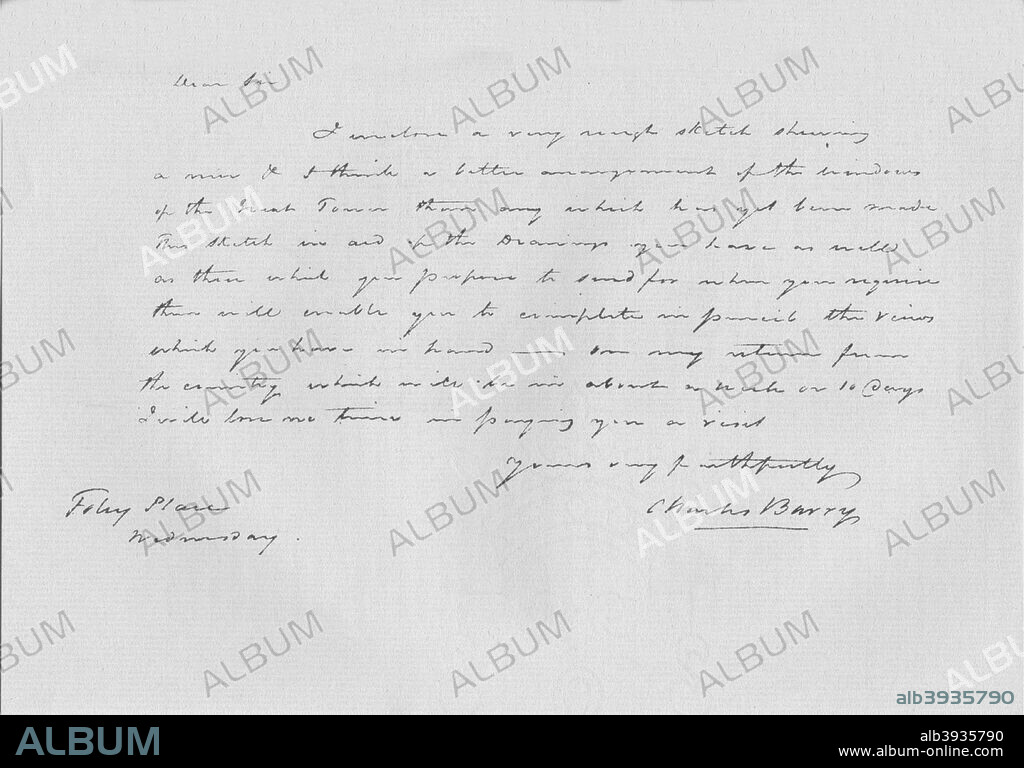 Dear Sir
I inclose a very rough sketch shewing
a new & I think a better arrangement of the windows
of the Great Tower than any which has yet been made
This sketch in aid of the Drawings you have as well
as those which you purpose to send for when you require
them will enable you to complete in pencil the views
which you have in hand — On my return from
the country which will be in about a week or 10 Days
I will lose no time in paying you a visit
Yours very faithfully
Charles Barry
Foley Place
Wednesday.
alb3935790
ALBUM
alb3935790
www.album-online.com